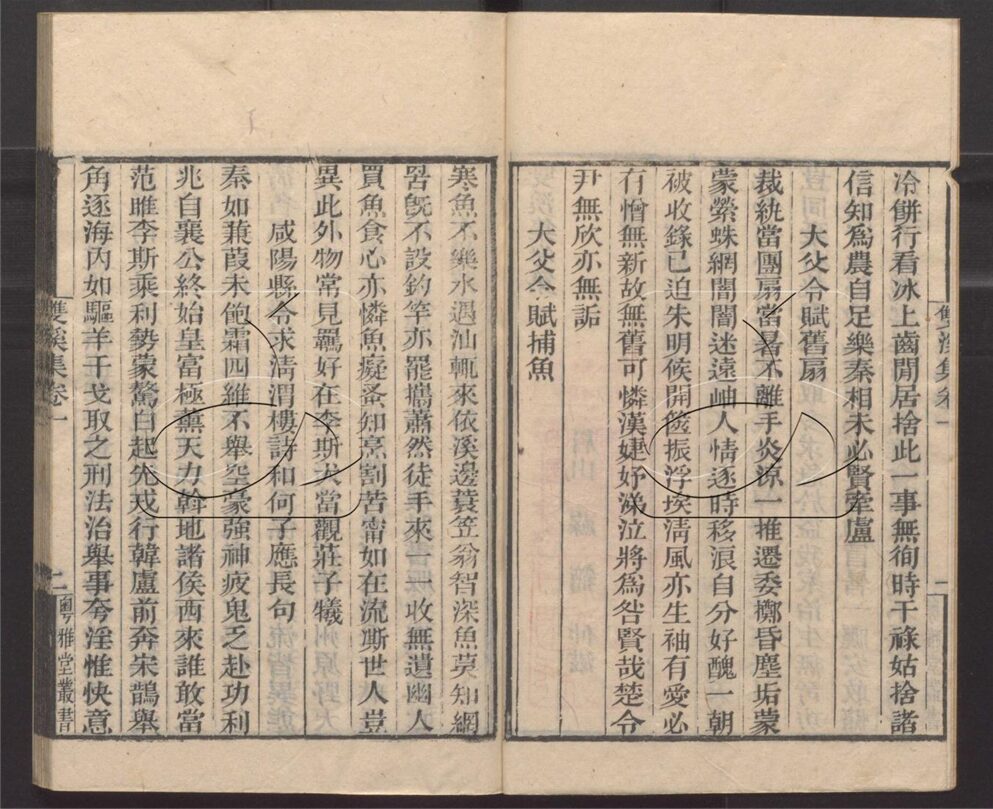 冷餅行看冰上齒閒居捨此一事無徇時干祿姑捨諸
信知爲農自足樂秦相未必賢牽盧
大父令賦舊扇
裁紈當團扇當暑不離手炎涼一推遷委擲昏塵垢蒙
蒙縈蛛網闇闇迷遠岫人情逐時移浪自分好醜一朝
被收錄已迫朱明候開篋振浮埃淸風亦生袖有愛必
有憎無新故無舊可憐漢婕妤涕泣將爲咎賢哉楚令
尹無欣亦無詬
大父令賦捕魚
雙溪集卷一
寒魚不樂水過汕輒來依溪邊蓑笠翁智深魚莫知網
罟旣不設釣竿亦罷攜蕭然徒手來一一收無遺幽人
買魚食心亦憐魚癡蚤知烹割苦甯如在流澌世人豈
異此外物常見羈好在李斯犬當觀莊子犧
咸陽縣令求淸渭樓詩和何子應長句
秦如蒹葭未飽霜四維不舉空豪強神疲鬼乏赴功利
兆自襄公終始皇富極薰天力斡地諸侯西來誰敢當
范雎李斯乘利勢蒙驁白起先戎行韓盧前奔宋鵲舉
角逐海內如驅羊干戈取之刑法治舉事夸淫惟快意
雙溪集卷一
二
粵雅堂叢書